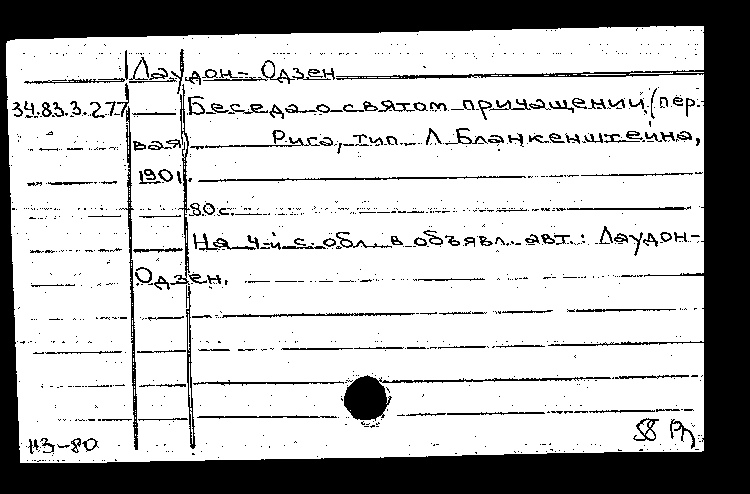 Лаудон-Одзен
34.83.3.277 Беседа о святом причащении (пер-
вая) Рига, тип. Л. Бланкенштейна,
1901.
80 с.
На 4-й с. обл. в объявл. авт.: Лаудон-
Одзен.
НЗ-80 58